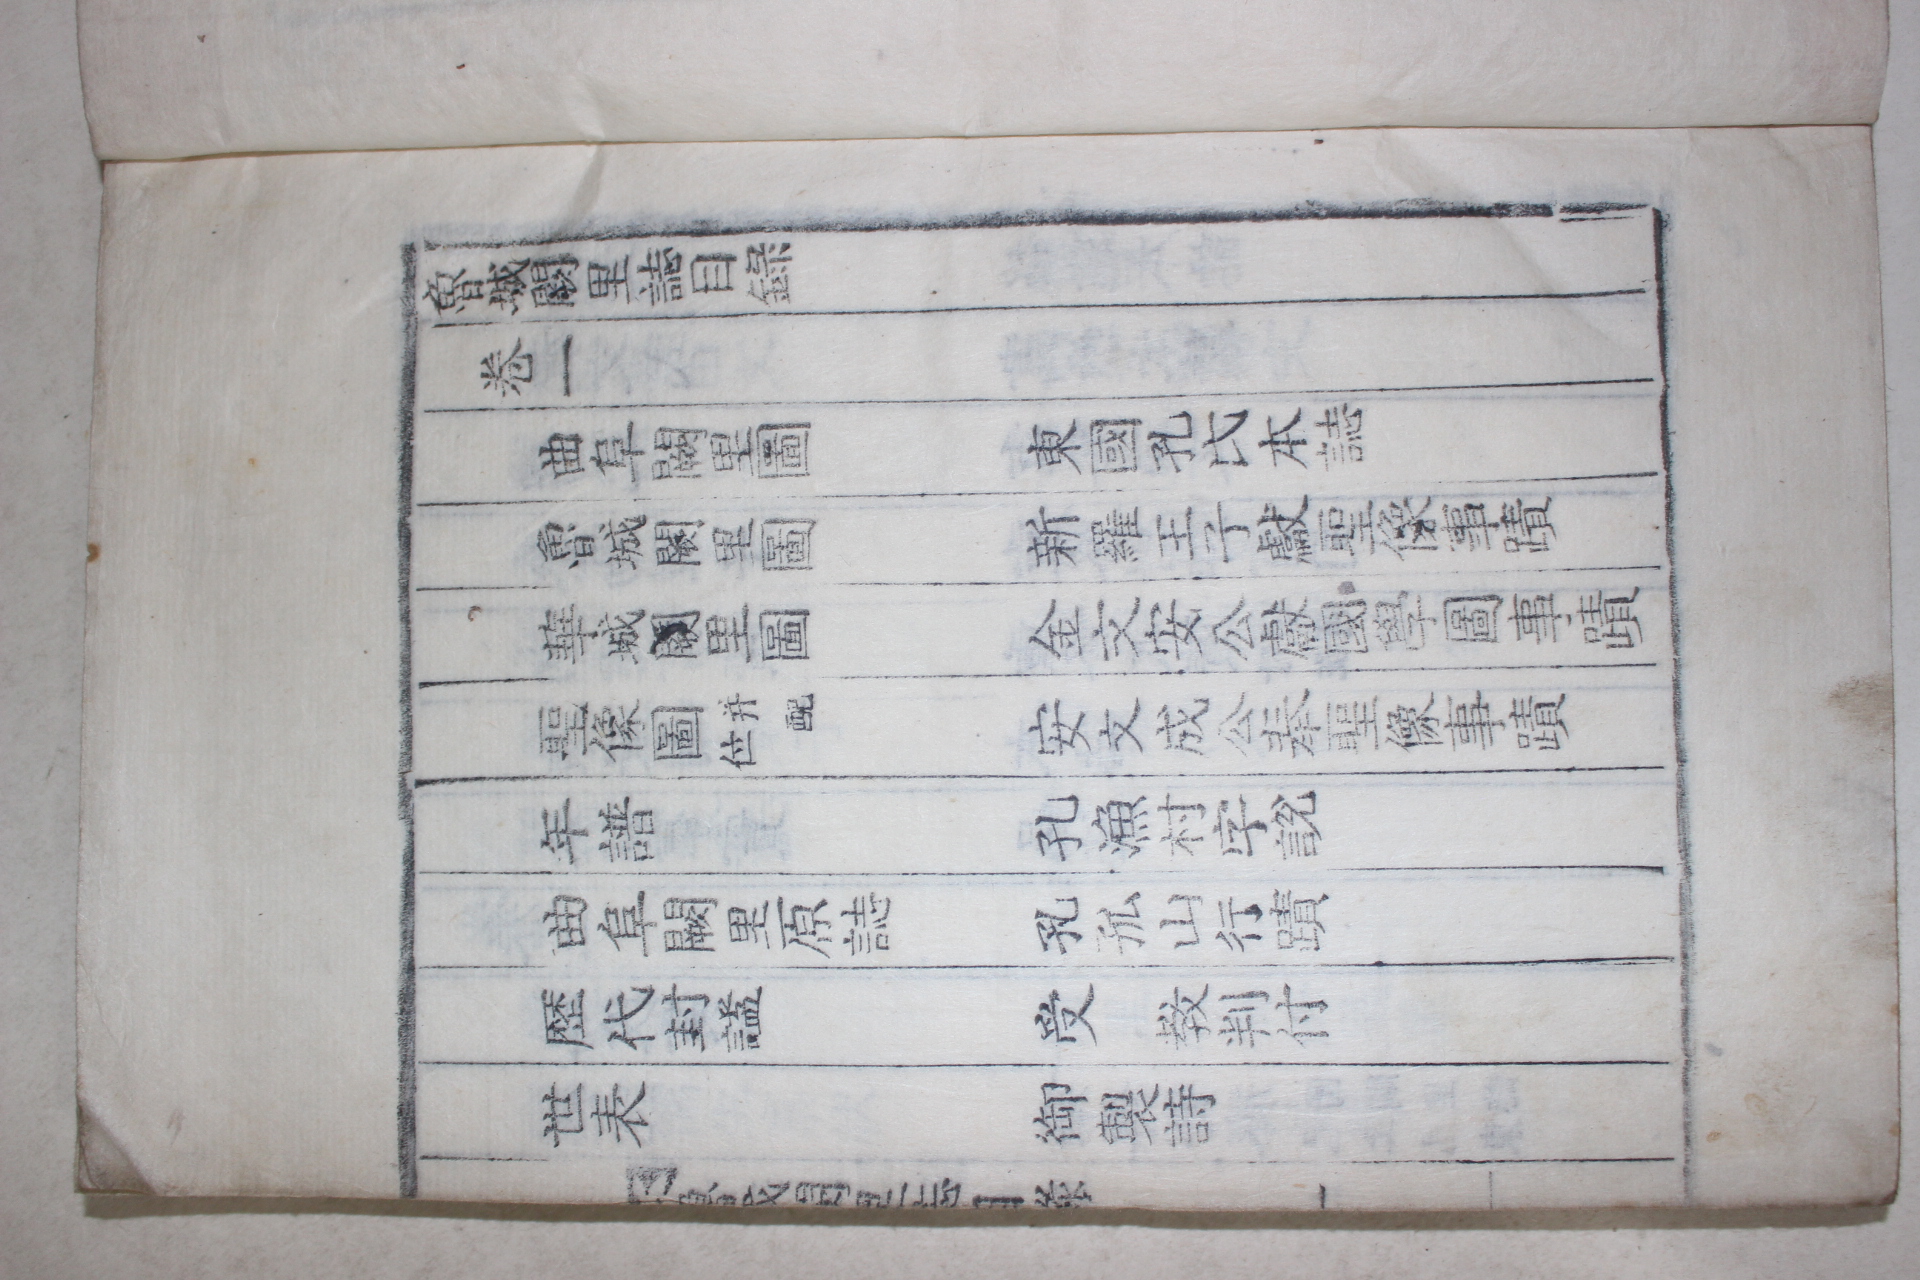 魯城闕里誌目錄
卷一
曲阜闕里圖 東國孔氏本誌
魯城闕里圖 新羅王子獻聖像事蹟
華城闕里圖 金文安公獻國學圖事蹟
聖像圖 并配位 安文成公奉聖像事蹟
年譜 孔漁村字說
曲阜闕里原誌 孔孤山行蹟
歷代封謚 受 教判付
世表 御製詩
魯城闕里誌目錄 一